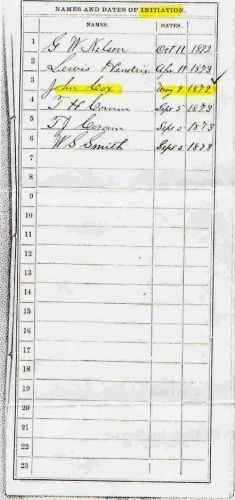 NAMES AND DATES OF INITIATION.
NAMES. DATES.
1 G W Nelson Oct 11 1872
2 Lewis Hendrix Apr 11 1873
3 John Cox May 9 1873
4 T H Coram Sept 5 1873
5 T J Coram Sept 5 1873
6 W S Smith Sept 5 1873
7
8
9
10
11
12
13
14
15
16
17
18
19
20
21
22
23